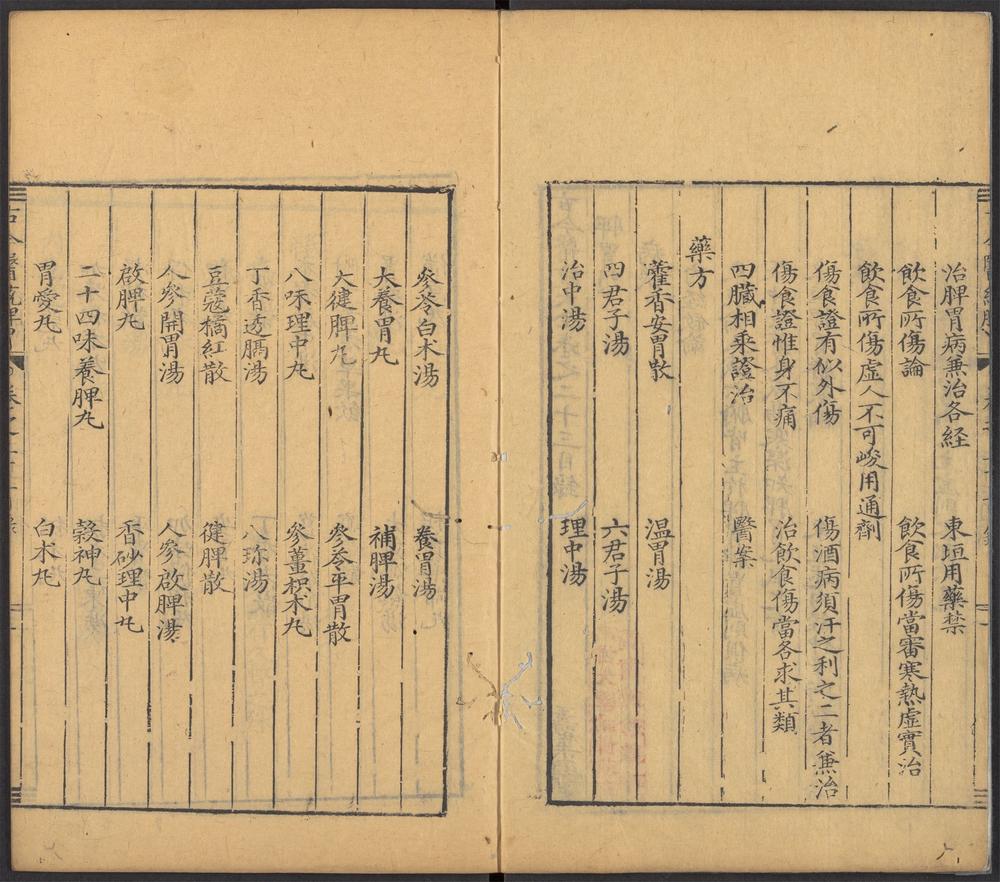 治脾胃病兼治各経 東垣用藥禁
飲食所傷論 飲食所傷當審寒熱虛實治
飲食所傷虛人不可峻用通劑
傷食證有似外傷 傷酒病須汗之利之二者兼治
傷食證惟身不痛 治飲食傷當各求其類
四臟相乘證治 醫案
藥方
藿香安胃散 温胃湯
四君子湯 六君子湯
治中湯 理中湯
參苓白朮湯 養胃湯
大養胃丸 補脾湯
大健脾丸 參苓平胃散
八味理中丸 參薑枳朮丸
丁香透膈湯 八珎湯
豆蔻橘紅散 健脾散
人參開胃湯 人參啟脾湯
啟脾丸 香砂理中丸
二十四味養脾丸 穀神丸
胃愛丸 白朮丸